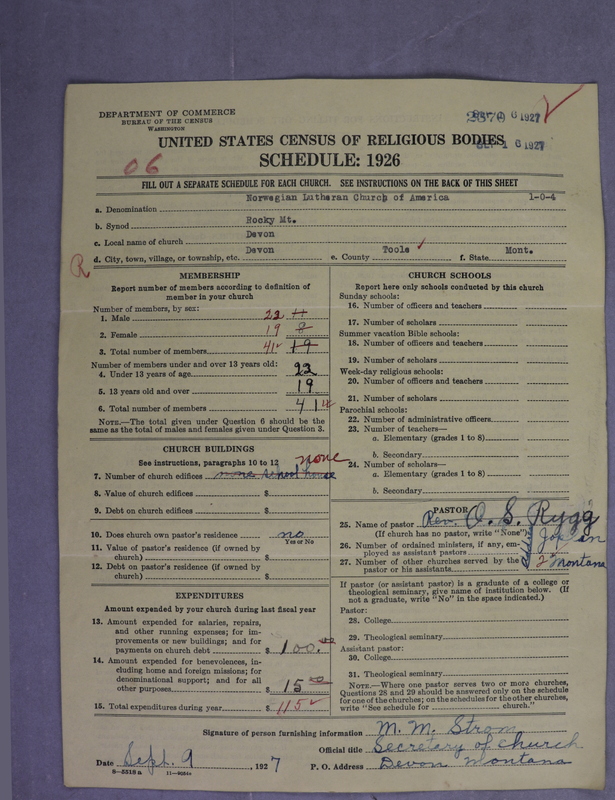 DEPARTMENT OF COMMERCE
BUREAU OF THE CENSUS
WASHINGTON
UNITED STATES CENSUS OF RELIGIOUS BODIES
SCHEDULE: 1926
06
FILL OUT A SEPARATE SCHEDULE FOR EACH CHURCH. SEE INSTRUCTIONS ON THE BACK OF THIS SHEET
a. Denomination Norwegian Lutheran Church of America 1-0-4
b. Synod Rocky Mt.
c. Local name of church Devon
R d. City, town, village, or township, etc. Devon e. County Toole ✓ f. State Mont.
MEMBERSHIP
Report number of members according to definition of
member in your church
Number of members, by sex:
1. Male 22 11
2. Female 19 8
3. Total number of members 41 19
Number of members under and over 13 years old:
4. Under 13 years of age 22
5. 13 years old and over 19
6. Total number of members 41
NOTE.—The total given under Question 6 should be the
same as the total of males and females given under Question 3.
CHURCH BUILDINGS
See instructions, paragraphs 10 to 12 none
7. Number of church edifices none school house
8. Value of church edifices $
9. Debt on church edifices $
10. Does church own pastor's residence no
Yes or No
11. Value of pastor's residence (if owned by
church) $
12. Debt on pastor's residence (if owned by
church) $
EXPENDITURES
Amount expended by your church during last fiscal year
13. Amount expended for salaries, repairs,
and other running expenses; for im-
provements or new buildings; and for
payments on church debt $ 100.00
14. Amount expended for benevolences, in-
cluding home and foreign missions; for
denominational support; and for all
other purposes $ 15 00
15. Total expenditures during year $ 115 ✓
CHURCH SCHOOLS
Report here only schools conducted by this church
Sunday schools:
16. Number of officers and teachers
17. Number of scholars
Summer vacation Bible schools:
18. Number of officers and teachers
19. Number of scholars
Week-day religious schools:
20. Number of officers and teachers
21. Number of scholars
Parochial schools:
22. Number of administrative officers
23. Number of teachers—
a. Elementary (grades 1 to 8)
b. Secondary
24. Number of scholars—
a. Elementary (grades 1 to 8)
b. Secondary
PASTOR
25. Name of pastor Rev. O. S. Rygg
(If church has no pastor, write "None")
26. Number of ordained ministers, if any, em-
ployed as assistant pastors Joplin
27. Number of other churches served by the
pastor or his assistants 2 Montana
If pastor (or assistant pastor) is a graduate of a college or
theological seminary, give name of institution below. (If
not a graduate, write "No" in the space indicated.)
Pastor:
28. College
29. Theological seminary
Assistant pastor:
30. College
31. Theological seminary
NOTE.—Where one pastor serves two or more churches,
Questions 28 and 29 should be answered only on the schedule
for one of the churches; on the schedules for the other churches,
write "See schedule for church."
Signature of person furnishing information M. M. Strom
Official title Secretary of church
Date Sept. 9, 1927 P. O. Address Devon Montana
8-5518a